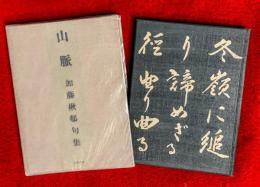 山脈
加藤楸邨句集
冬嶺に縋
り諦めざる
径曲り曲る